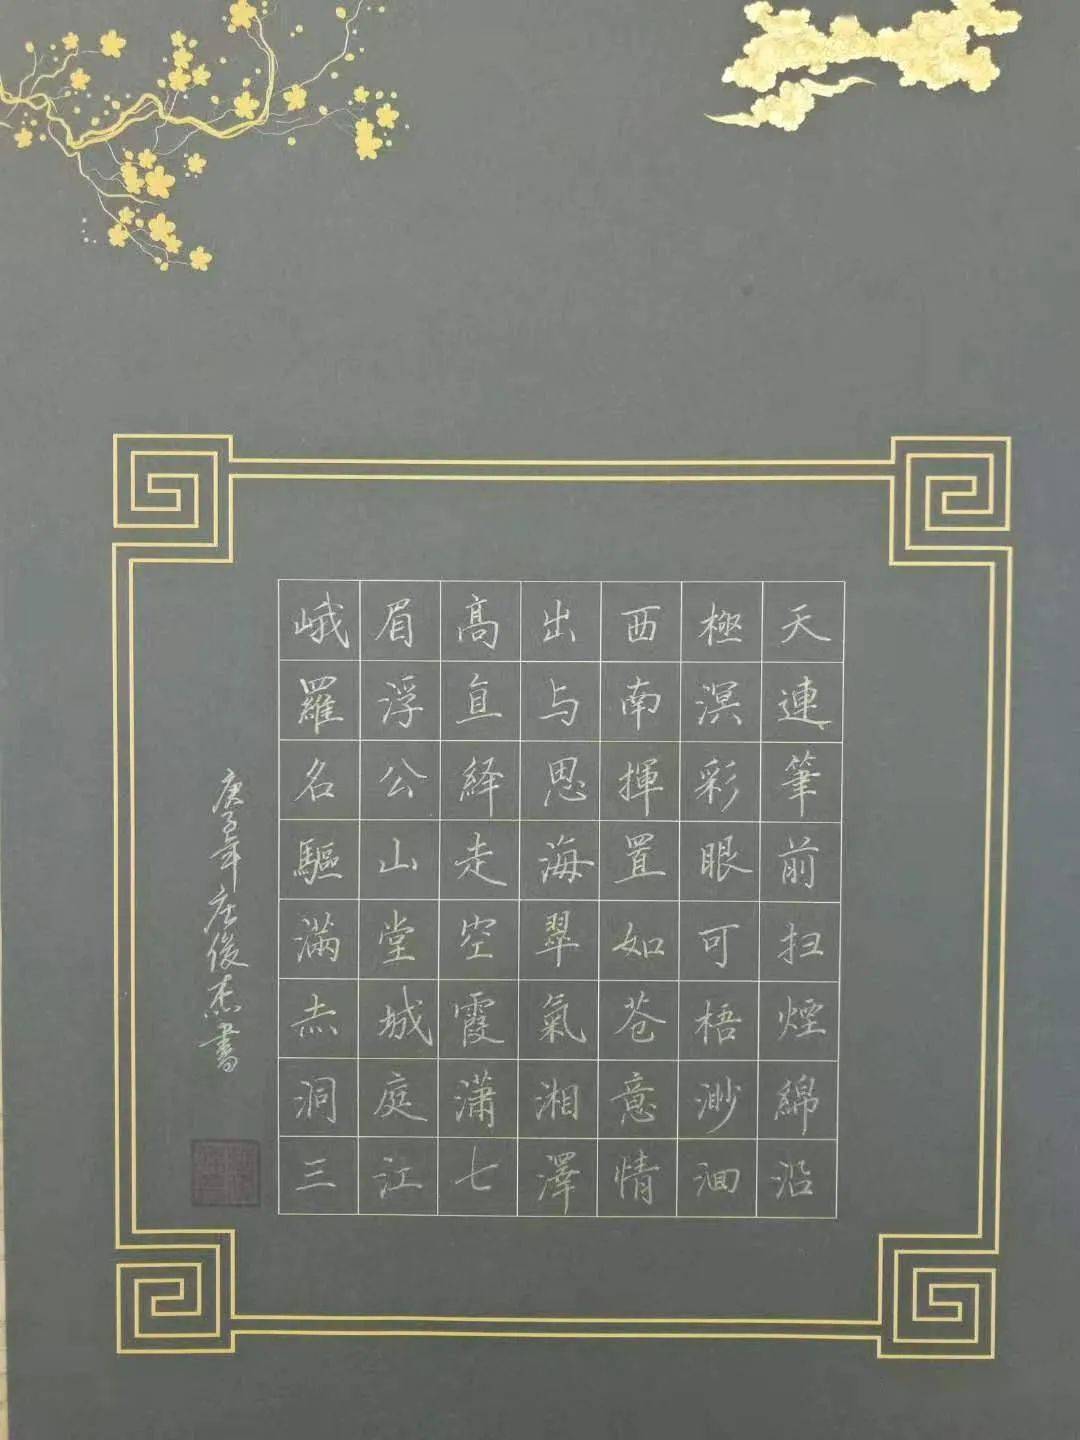 峨眉高出西極天
羅浮直与南溟連
名公繹思揮彩筆
驅山走海置眼前
滿堂空翠如可扫
赤城霞氣苍梧煙
洞庭瀟湘意渺綿
三江七澤情洄沿
庚子年庄俊杰書